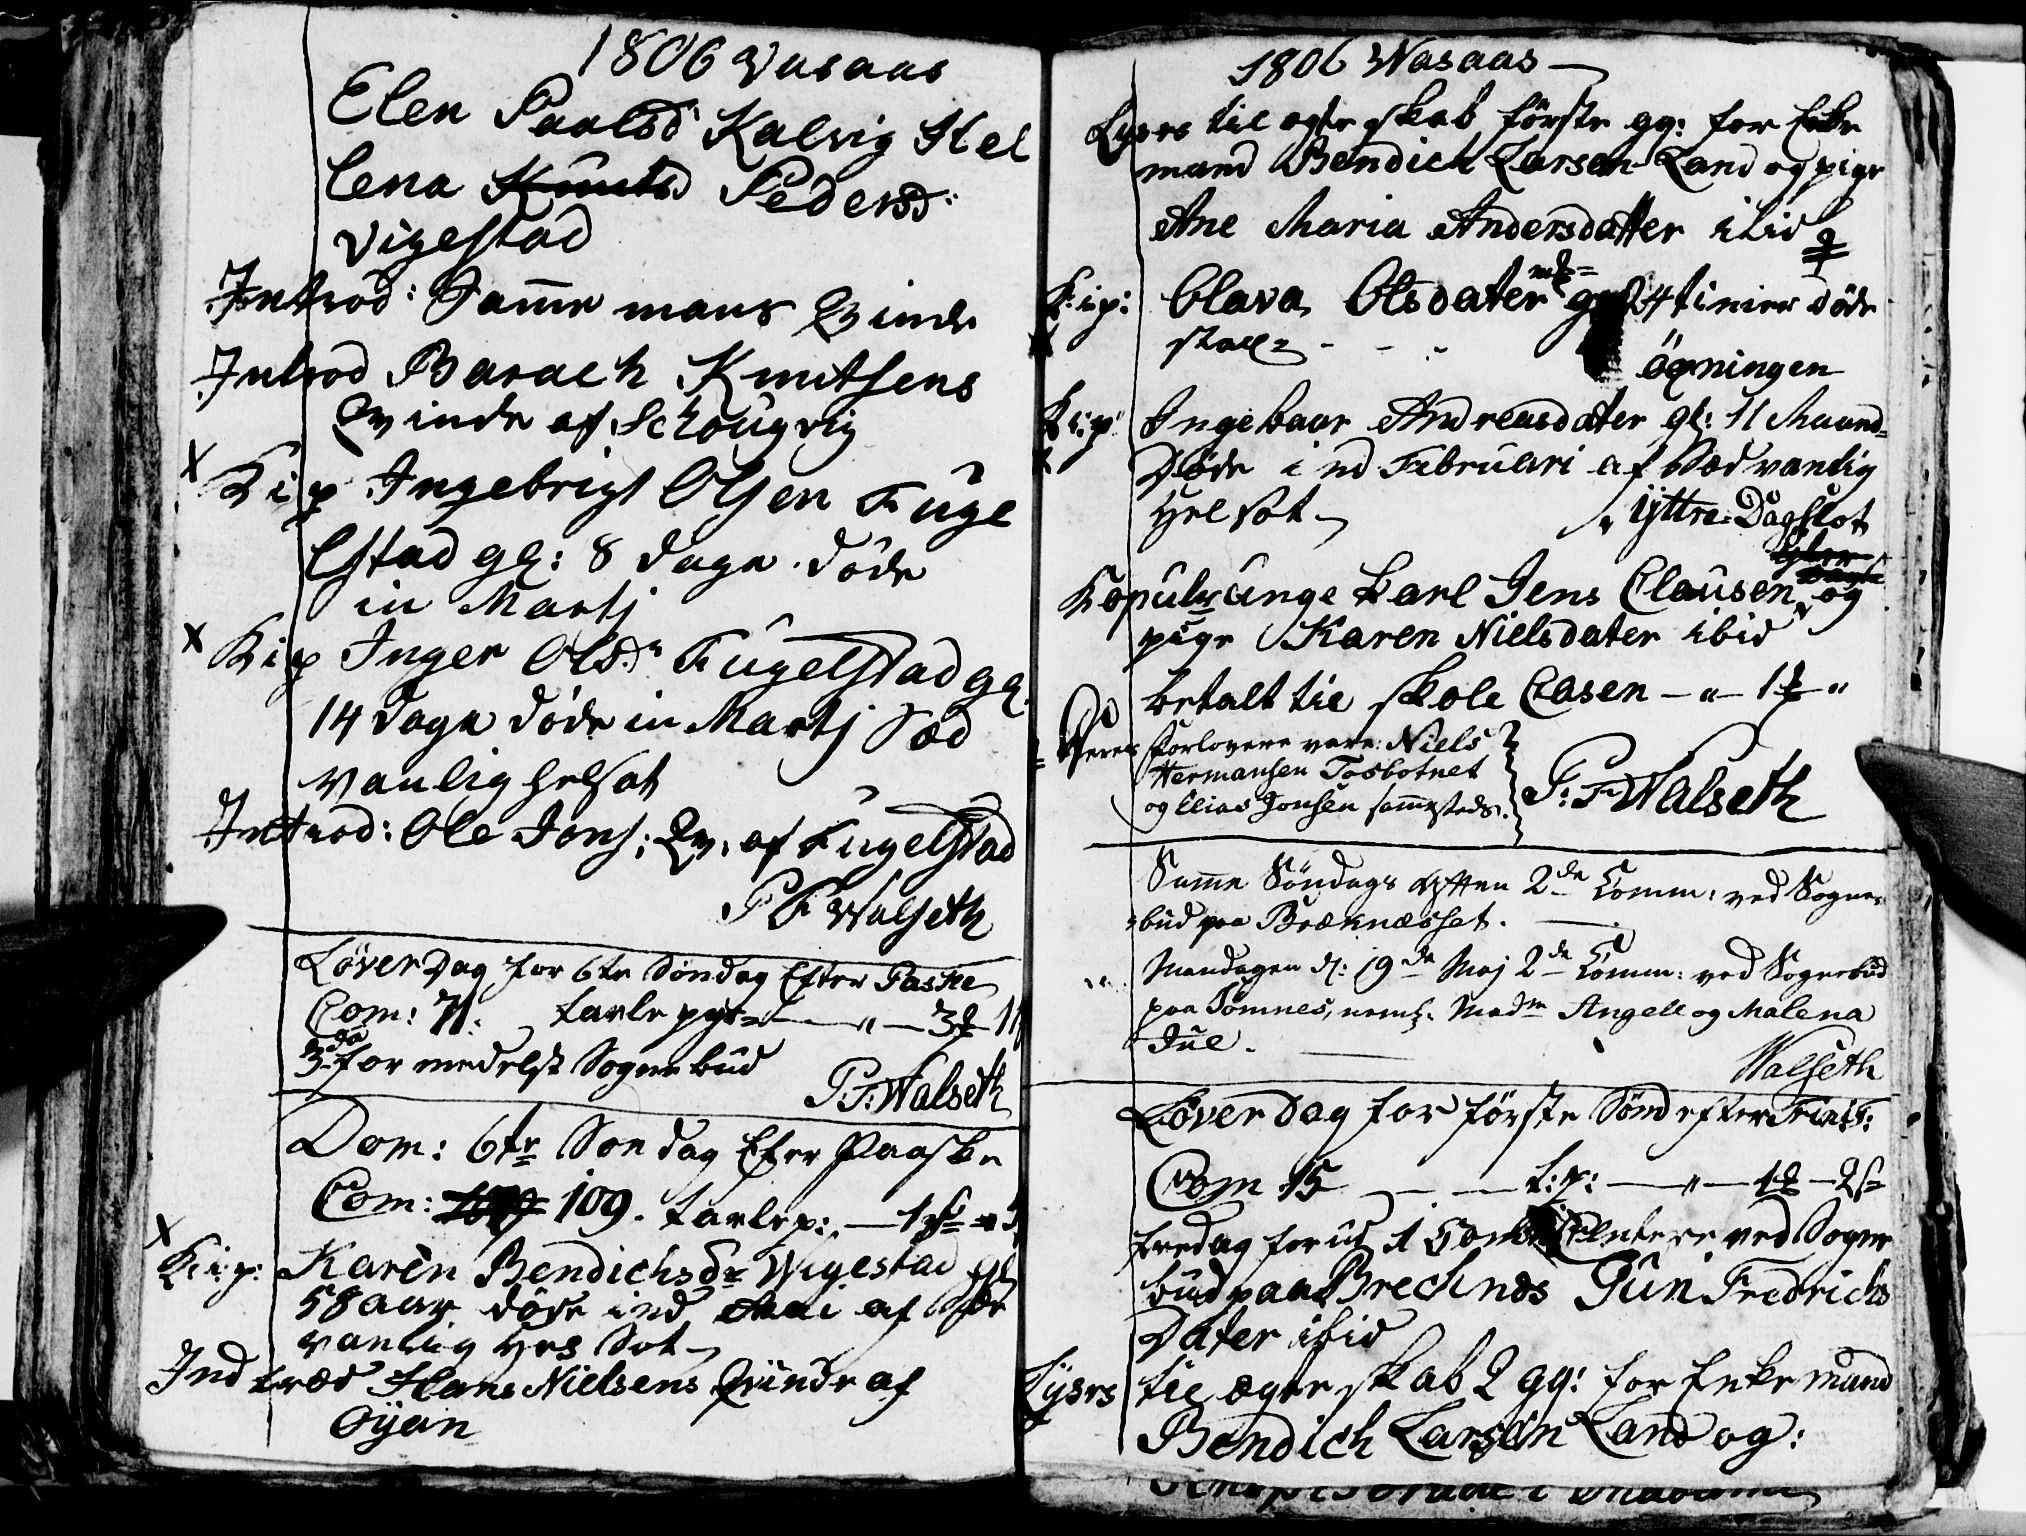 1806 Vasaas
Elen Paalsd Kalvig Hel
lena Knutsd Pedersd:
Vigestad
Introd: Samme mans Qvinde
Introd Barach Knutsens
Qvinde af Schougvig
x Kip Ingebrigt Olsen Fuge
lstad gl: 8 dage døde
in Martj
x Kip Inger Olsdr Fugelstad gl.
14 dage døde in Martj Sæd
vanlig helsot
Introd: Ole Jons: Qv. af Fugelstad
P F Walseth
Løverdag for 6te Søndag Efter Paske
Com: 71. tavle pge - „ - 3 - 11
3de for medelst Sognebud
P. F. Walseth
Dom: 6te Søndag Efter Paaske
Com: 109. tavle p: - 1
x
Ki:p: Karen Bendichsdr Wigestad gl
58 aar døde ind Mai af Sæd
vanlig Hels Sot
Indtræd Hans Nielsens Qvinde af
Øyan
1806 Wasaas
Lyses til ægteskab første gg: for Enke
mand Bendich Larsen Land og pige
Ane Maria Andersdatter ibid
K:ip: Olava Olsdater gl 24 timer døde
stak
øpningen
Ki:p: Ingebaar Andreasdater gl: 11 Maand
Døde ind Februari af Sædvanlig
Helsot
Yttre Dagslot
Kopul: unge karl Jens Clausen og
pige Karen Nielsdater ibid
betalt til skole Casen - „ - 1 „
Deres Forlovere vare: Niels
Hermansen Tosbotnet
og Elias Jonsen sammesteds.
P: F Walseth
Samme Søndags Aften 2de Comm: ved Sogne-
bud paa Bræknæsset.
Mandagen d: 19de Maj 2de Comm: ved Sognebud
paa Tømnes, neml. Madm Angell og Malena
Due.
Walseth
Løverdag for første Sønd efter Trinit:
Com 15 - - t:p: - „ - 1 - 2
fredag forud 1 ved Sogne
bud paa Brechnes Gun Fredrichs
Dater ibid
Lyses til ægteskab 2 gg: for Enkemand
Bendich Larsen Land og: